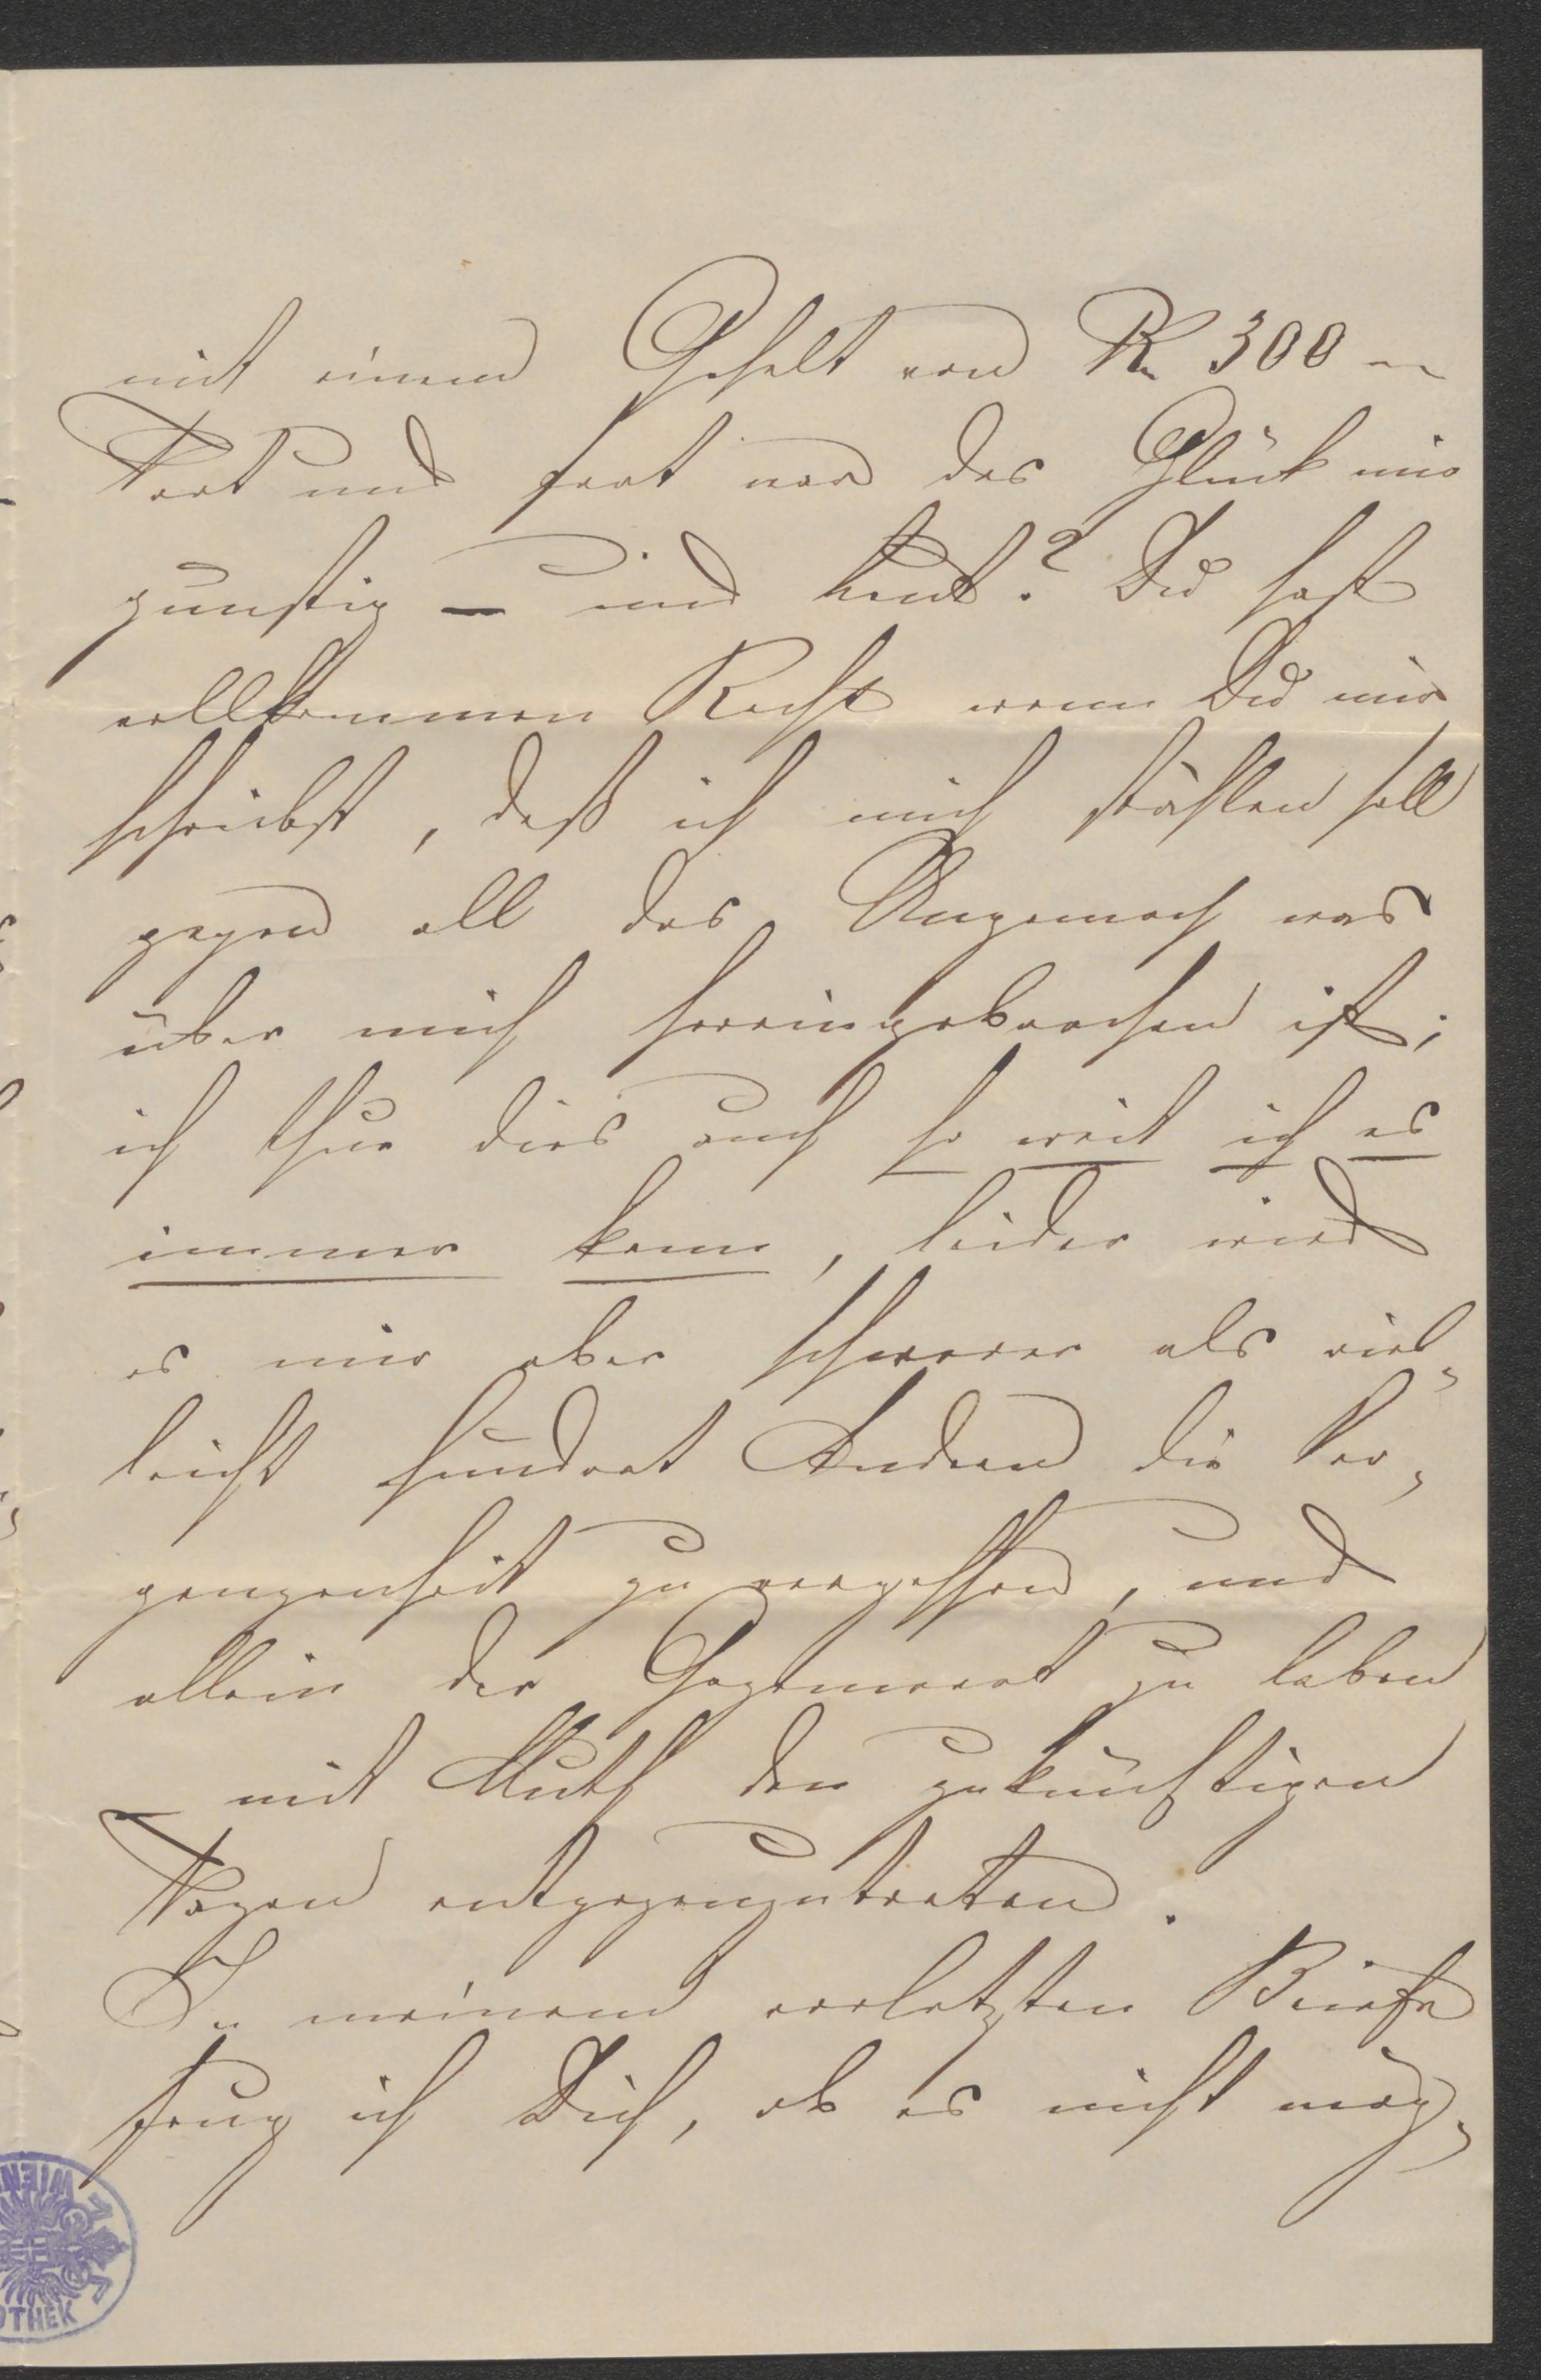 mit einem Gehalt von R 300 –
Fort und fort war das Glück mir
günstig – und heut? Du hast
vollkommen Recht wenn Du mir
schreibst, daß ich mich stählen soll
gegen all das Ungemach was
über mich hereingebrochen ist;
ich thue dies auch so weit ich es
immer kann, leider wird
es mir aber schwerer als viel-
leicht hundert Andern die Ver-
gangenheit zu vergessen, und
allein der Gegenwart zu leben
– mit Muth den zukünftigen
Tagen entgegenzutreten.
In meinem vorletzten Briefe
frug ich Dich, ob es nicht mög-
WIEN
OTHEK